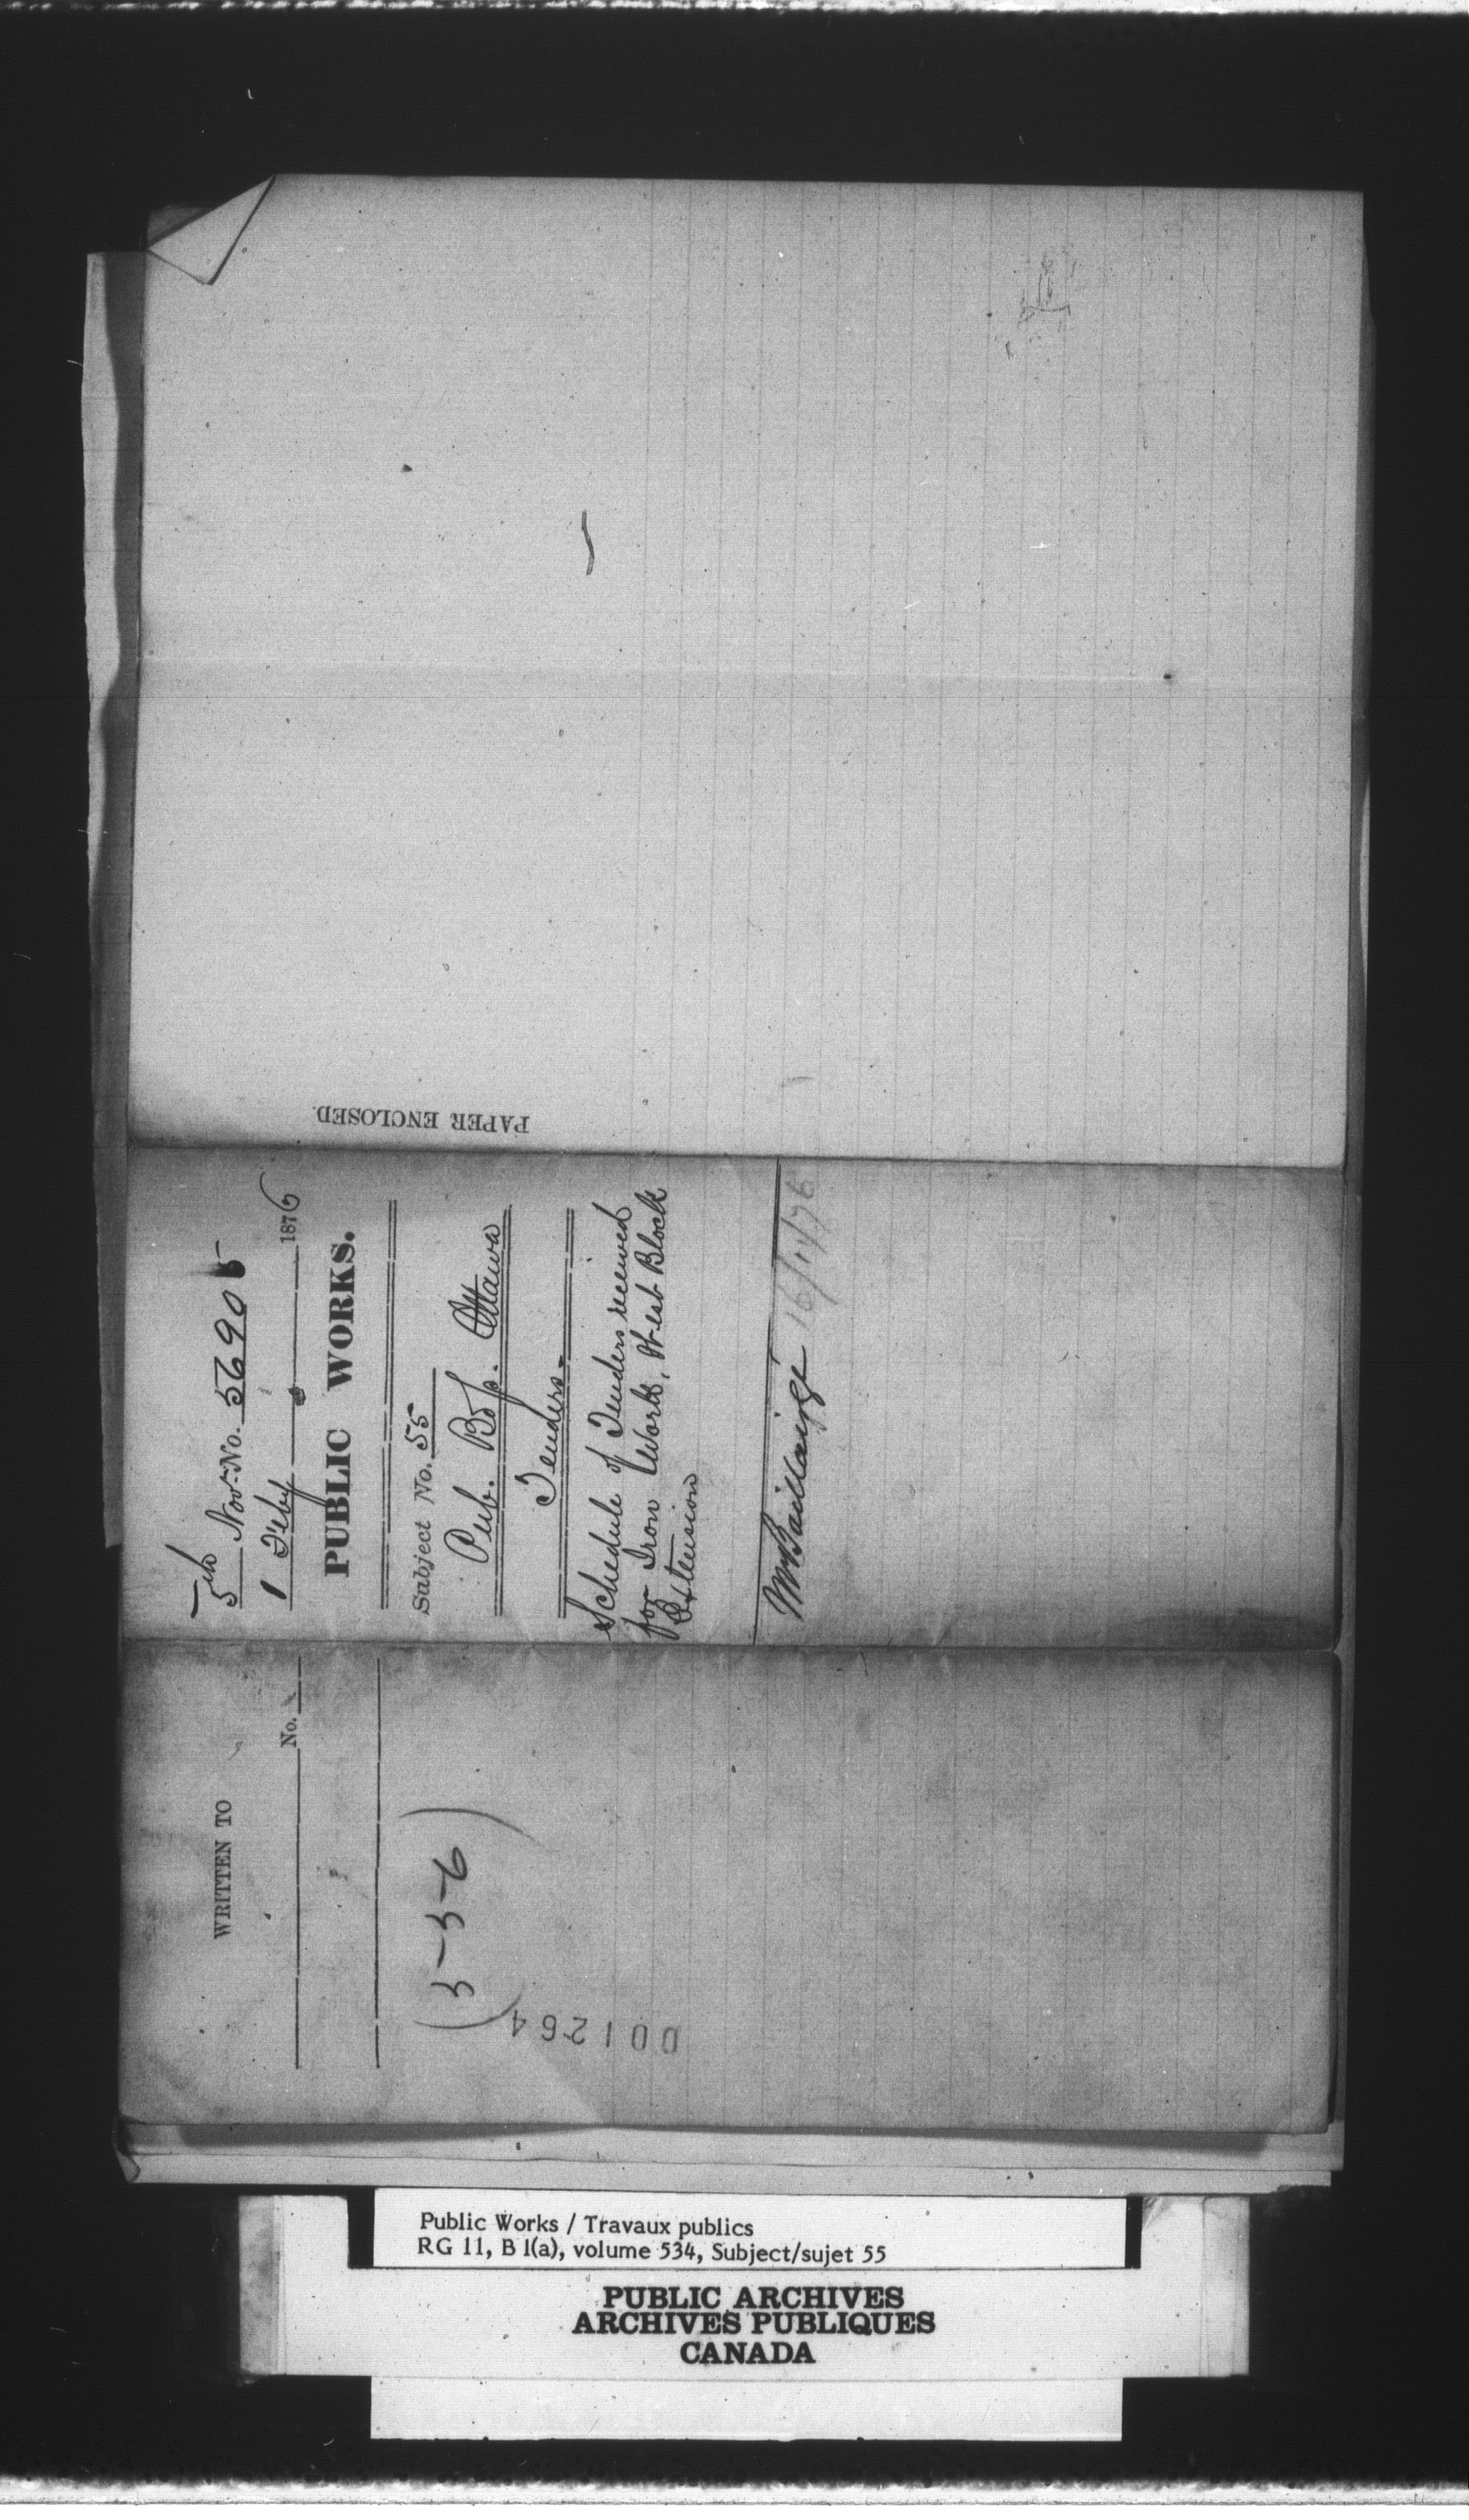 PAPER ENCLOSED.
5th Nov. No. 56905
1 Feby 1876
PUBLIC WORKS.
Subject No. 55
Pub. Bdgs. Ottawa
Tenders
Schedule of Tenders received
for Iron Work, West Block
Extension
Mr Baillairgé 16/11/76
WRITTEN TO
No.
001264
Public Works / Travaux publics
RG 11, B 1(a), volume 534, Subject/sujet 55
PUBLIC ARCHIVES
ARCHIVES PUBLIQUES
CANADA